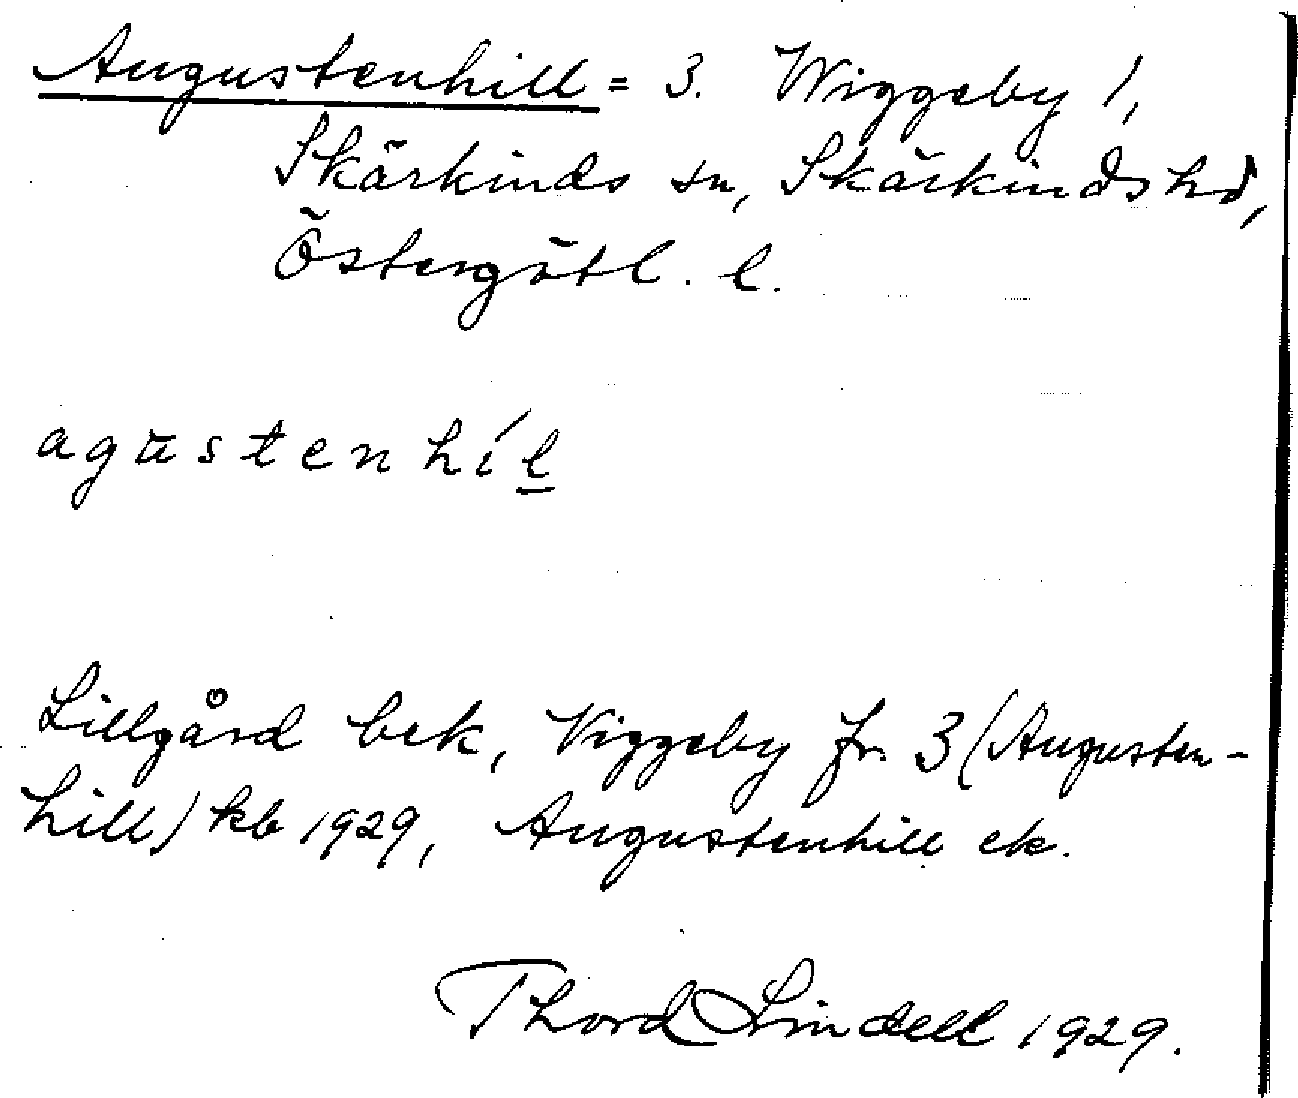 Augustenhill = 3. Wiggeby 1,
Skärkinds sn, Skärkinds hd,
Östergötl. l.
agustenhíl
Lillgård bek, Viggeby fr. 3 (Augusten-
hill) kb 1929, Augustenhill ek.
Thord Lindell 1929.